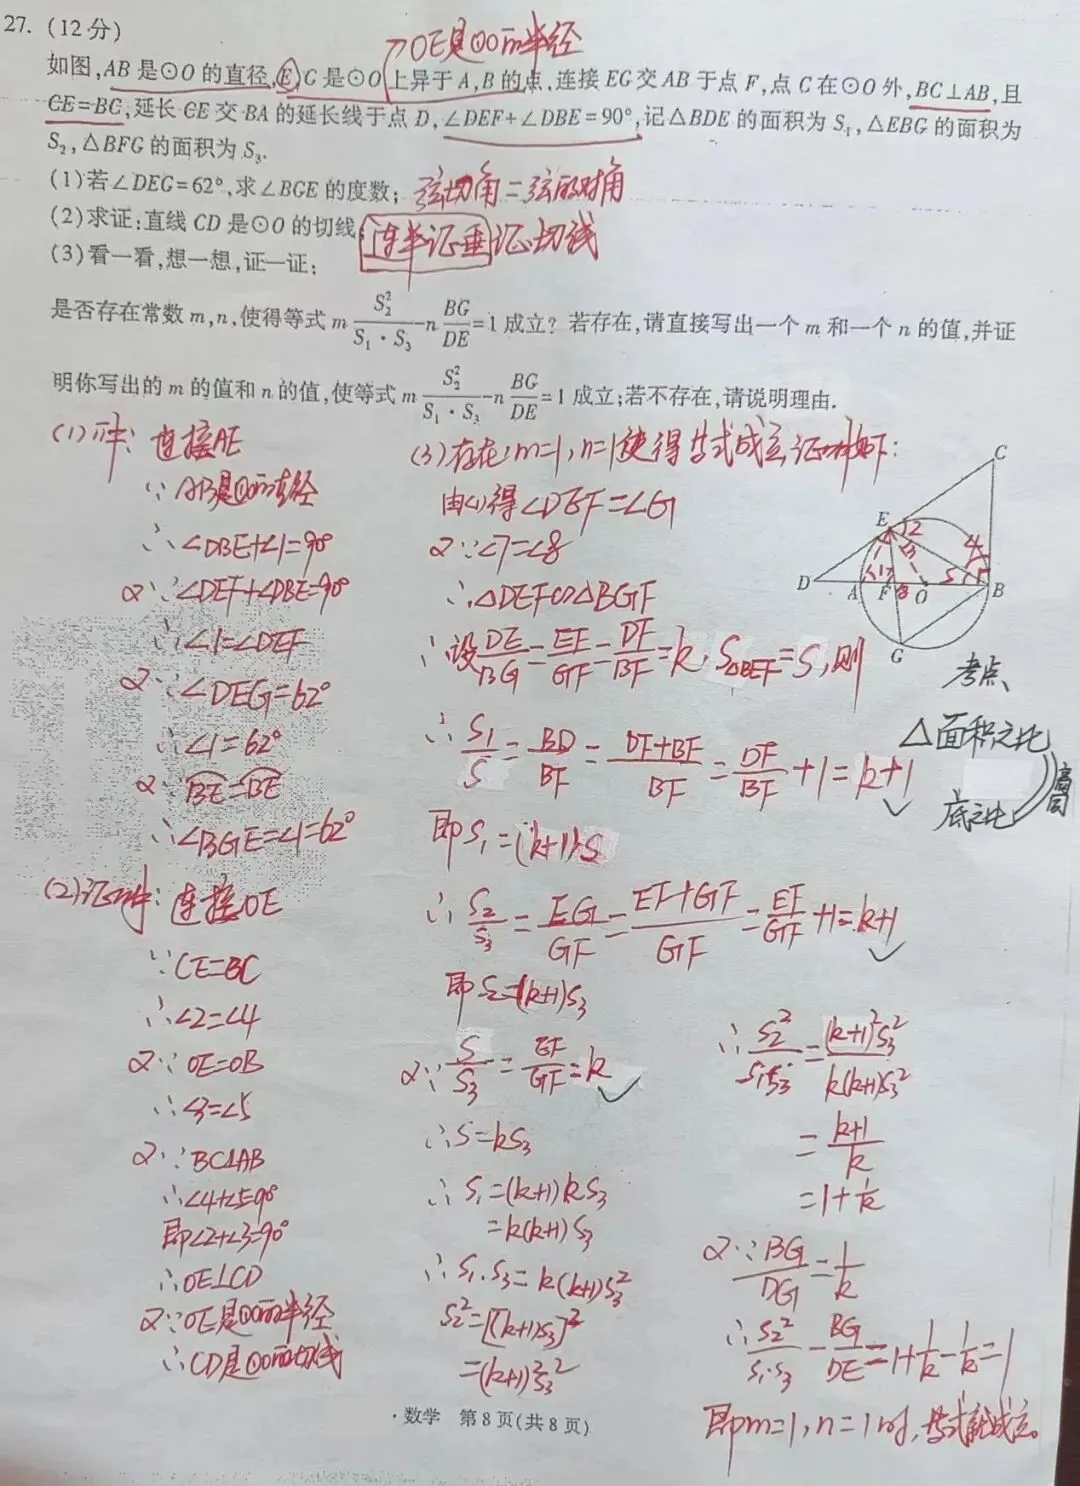 27. (12分)
→OE是⊙O的半径
如图,AB是⊙O的直径,E,G是⊙O上异于A,B的点,连接EG交AB于点F,点C在⊙O外,BC⊥AB,且
CE=BC,延长CE交BA的延长线于点D,∠DEF+∠DBE=90°,记△BDE的面积为S₁,△EBG的面积为
S₂,△BFG的面积为S₃.
(1)若∠DEG=62°,求∠BGE的度数; 弦切角=弦的对角
(2)求证:直线CD是⊙O的切线; 连半证垂证切线
(3)看一看,想一想,证一证:
是否存在常数m,n,使得等式 m S₂²/(S₁·S₃) - n BG/DE = 1 成立?若存在,请直接写出一个m和一个n的值,并证
明你写出的m的值和n的值,使等式 m S₂²/(S₁·S₃) - n BG/DE = 1 成立;若不存在,请说明理由.
(1)解: 连接AE
∵AB是⊙O的直径
∴∠DBE+∠1=90°
又∵∠DEF+∠DBE=90°
∴∠1=∠DEF
又∵∠DEG=62°
∴∠1=62°
又∵BE=BE
∴∠BGE=∠1=62°
(2)证明: 连接OE
∵CE=BC
∴∠2=∠4
又∵OE=OB
∴∠3=∠5
又∵BC⊥AB
∴∠4+∠5=90°
即∠2+∠3=90°
∴OE⊥CD
又∵OE是⊙O的半径
∴CD是⊙O的切线
(3)存在,m=1,n=1使得等式成立,证明如下:
由(1)得∠DEF=∠G
又∵∠7=∠8
∴△DEF∽△BGF
∴设DE/BG=EF/GF=DF/BF=k,S△BEF=S,则
∴S₁/S=BD/BF=(DF+BF)/BF=DF/BF+1=k+1
即S₁=(k+1)S
∴S₂/S₃=EG/GF=(EF+GF)/GF=EF/GF+1=k+1
即S₂=(k+1)S₃
又∵S/S₃=EF/GF=k
∴S=kS₃
∴S₁=(k+1)kS₃
=k(k+1)S₃
∴S₁·S₃=k(k+1)S₃²
S₂²=[(k+1)S₃]²
=(k+1)²S₃²
∴S₂²/S₁S₃=(k+1)²S₃²/k(k+1)S₃²
=(k+1)/k
=1+1/k
又∵BG/DG=1/k
∴S₂²/S₁·S₃-BG/DE=1+1/k-1/k=1
即m=1,n=1时,等式就成立。
C
E
2
1
3
4
D
A
F
8
O
5
B
G
考点、
△面积之比
底之比
高同
·数学 第8页(共8页)